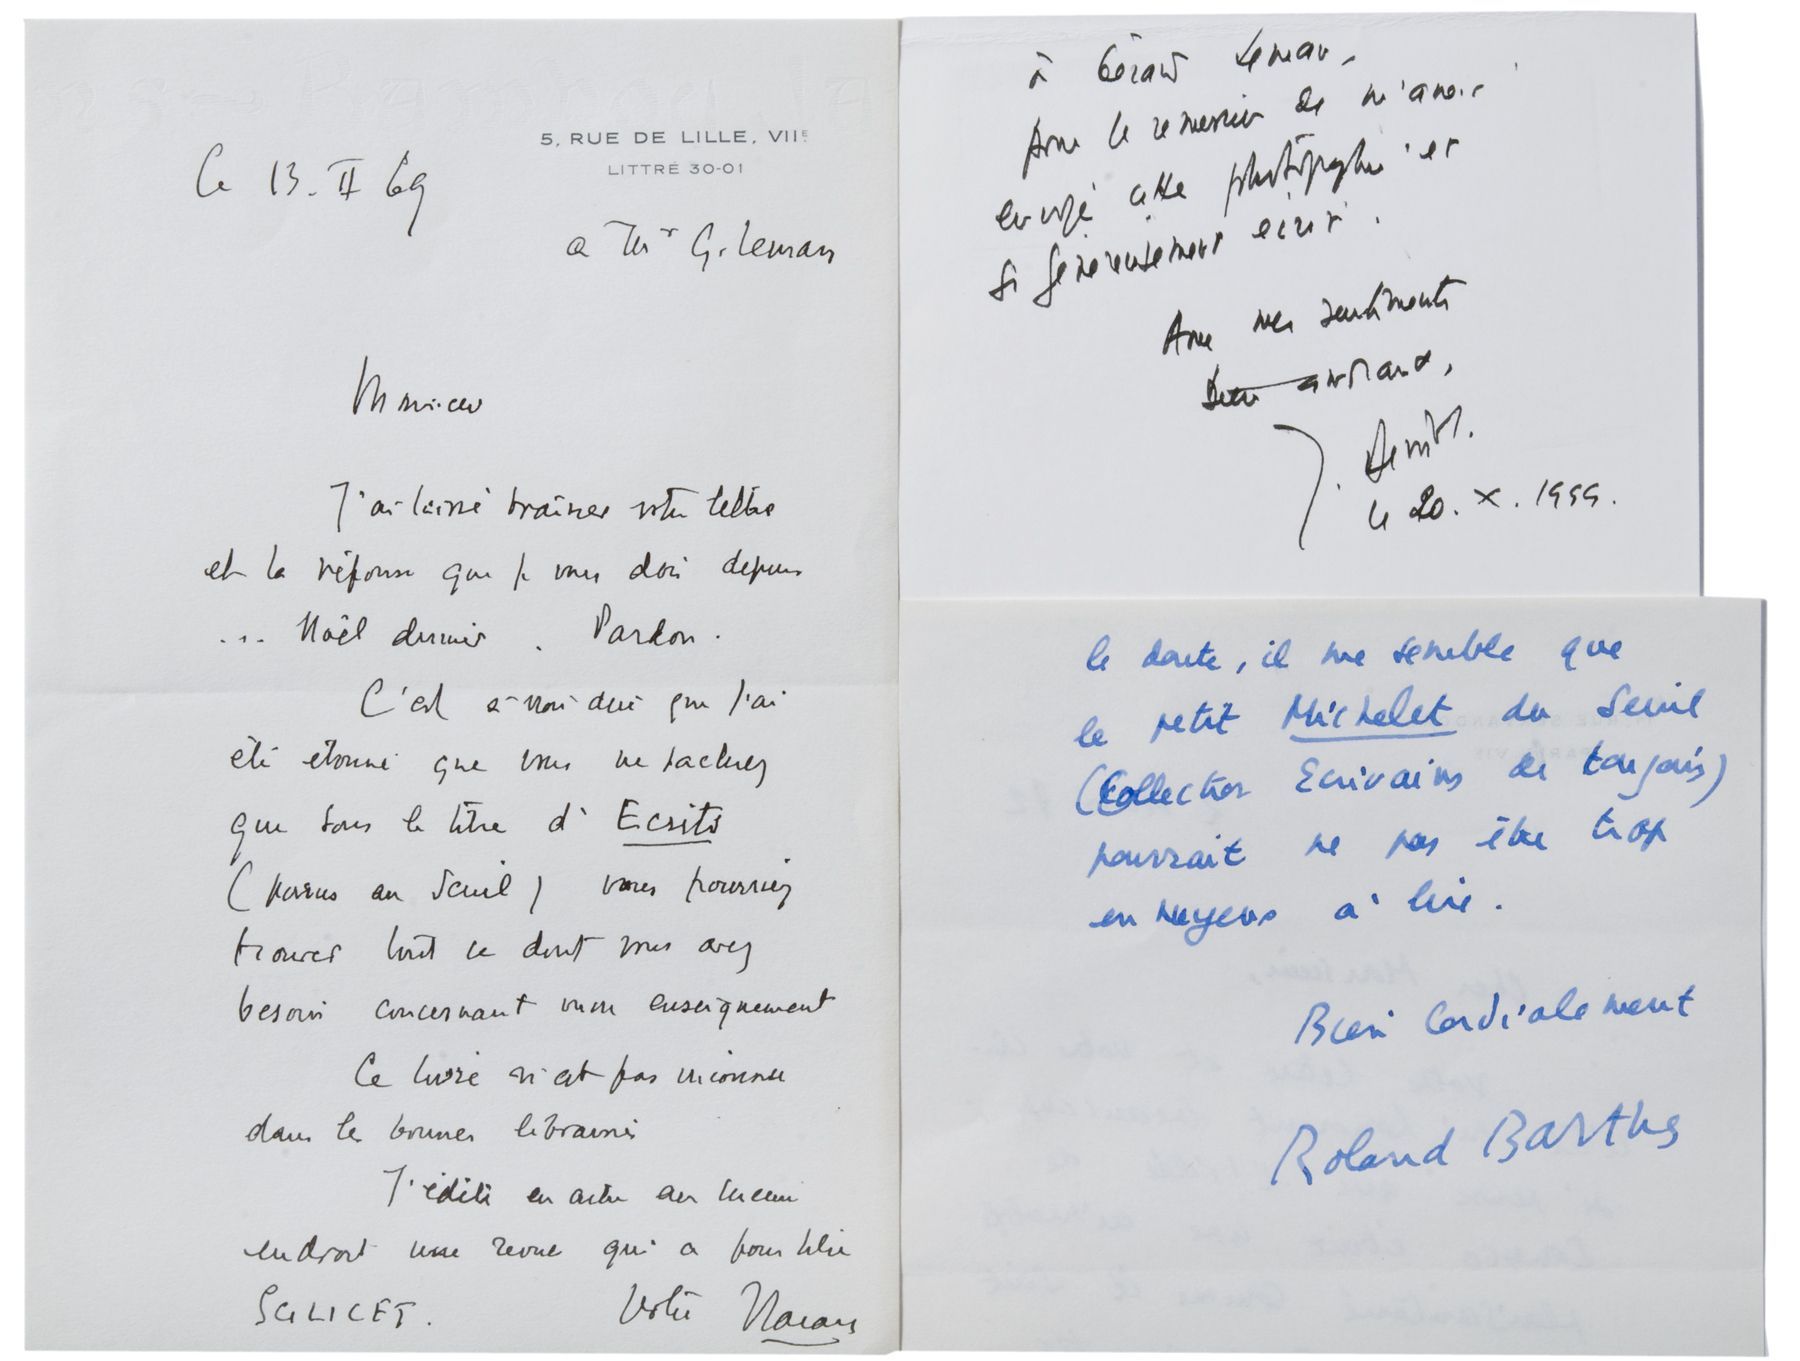 5, RUE DE LILLE, VIIE
LITTRÉ 30-01
Ce 13. II 69
a Mr G. Leman
Monsieur
J'ai laissé traîner votre lettre
et la réponse que je vous dois depuis
... Noël dernier. Pardon.
C'est à vous dire que j'ai
été étonné que vous ne sachiez
que sous le titre d'Ecrits
(parus au Seuil) vous pourriez
trouver tout ce dont vous avez
besoin concernant mon enseignement
Ce livre n'est pas inconnu
dans les bonnes librairies
J'édite en outre au même
endroit une revue qui a pour titre
SCILICET. Votre
à Gérard Leman,
pour le remercier de m'avoir
envoyé cette photographie et
si généreusement écrit.
Avec mes sentiments
J.
le 20. X. 1999.
le doute, il me semble que
le petit Michelet du Seuil
(Collection Ecrivains de toujours)
pourrait ne pas être trop
ennuyeux à lire.
Bien Cordialement
Roland Barthes